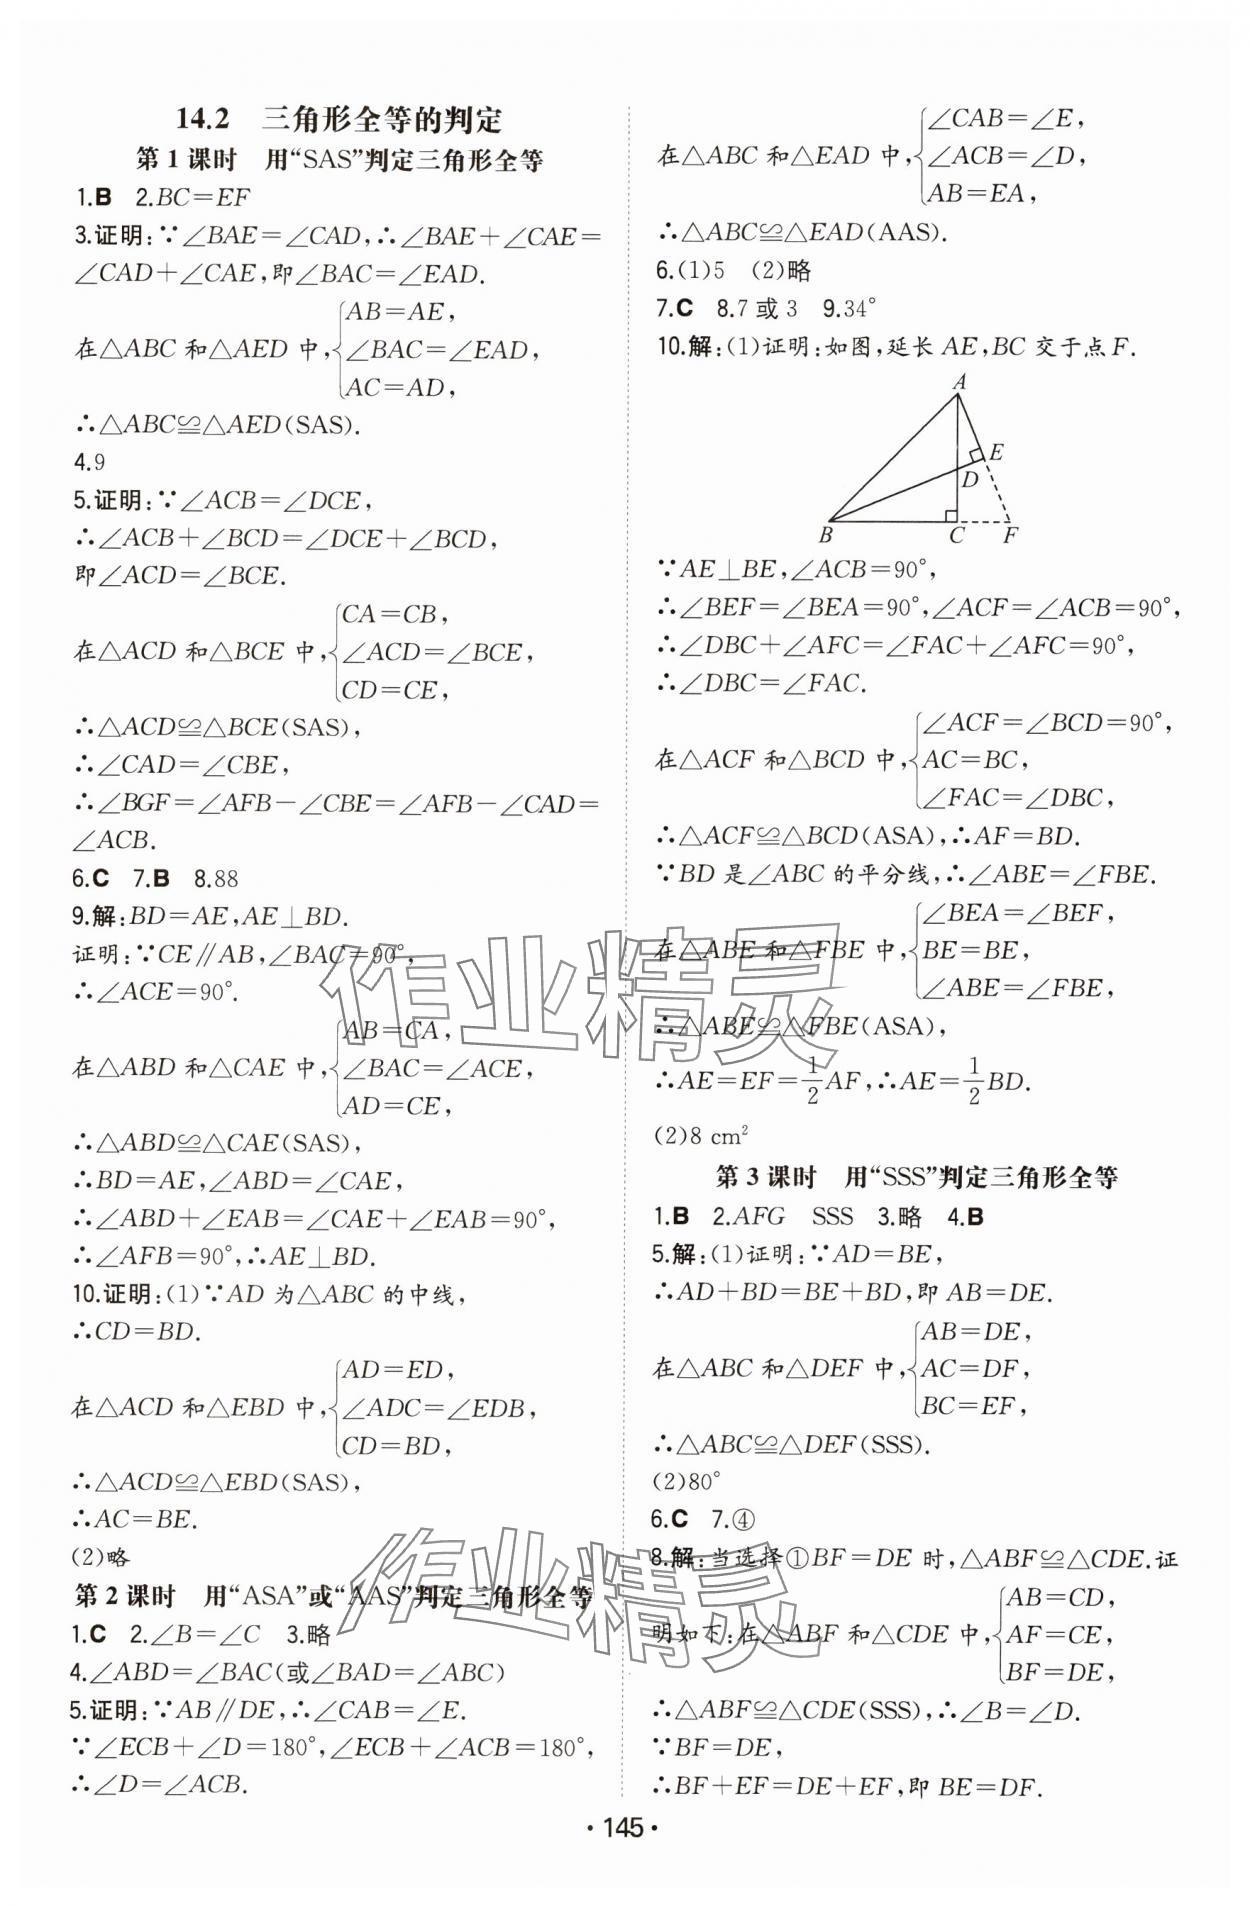 14.2 三角形全等的判定
第1课时 用“SAS”判定三角形全等
1.B 2.BC=EF
3.证明:∵∠BAE=∠CAD,∴∠BAE+∠CAE=
∠CAD+∠CAE,即∠BAC=∠EAD.
AB=AE,
在△ABC和△AED中,{∠BAC=∠EAD,
AC=AD,
∴△ABC≌△AED(SAS).
4.9
5.证明:∵∠ACB=∠DCE,
∴∠ACB+∠BCD=∠DCE+∠BCD,
即∠ACD=∠BCE.
CA=CB,
在△ACD和△BCE中,{∠ACD=∠BCE,
CD=CE,
∴△ACD≌△BCE(SAS),
∴∠CAD=∠CBE,
∴∠BGF=∠AFB-∠CBE=∠AFB-∠CAD=
∠ACB.
6.C 7.B 8.88
9.解:BD=AE,AE⊥BD.
证明:∵CE∥AB,∠BAC=90°,
∴∠ACE=90°.
AB=CA,
在△ABD和△CAE中,{∠BAC=∠ACE,
AD=CE,
∴△ABD≌△CAE(SAS),
∴BD=AE,∠ABD=∠CAE,
∴∠ABD+∠EAB=∠CAE+∠EAB=90°,
∴∠AFB=90°,∴AE⊥BD.
10.证明:(1)∵AD为△ABC的中线,
∴CD=BD.
AD=ED,
在△ACD和△EBD中,{∠ADC=∠EDB,
CD=BD,
∴△ACD≌△EBD(SAS),
∴AC=BE.
(2)略
第2课时 用“ASA”或“AAS”判定三角形全等
1.C 2.∠B=∠C 3.略
4.∠ABD=∠BAC(或∠BAD=∠ABC)
5.证明:∵AB∥DE,∴∠CAB=∠E.
∵∠ECB+∠D=180°,∠ECB+∠ACB=180°,
∴∠D=∠ACB.
∠CAB=∠E,
在△ABC和△EAD中,{∠ACB=∠D,
AB=EA,
∴△ABC≌△EAD(AAS).
6.(1)5 (2)略
7.C 8.7或3 9.34°
10.解:(1)证明:如图,延长AE,BC交于点F.
A
E
D
B C F
∵AE⊥BE,∠ACB=90°,
∴∠BEF=∠BEA=90°,∠ACF=∠ACB=90°,
∴∠DBC+∠AFC=∠FAC+∠AFC=90°,
∴∠DBC=∠FAC.
∠ACF=∠BCD=90°,
在△ACF和△BCD中,{AC=BC,
∠FAC=∠DBC,
∴△ACF≌△BCD(ASA),∴AF=BD.
∵BD是∠ABC的平分线,∴∠ABE=∠FBE.
∠BEA=∠BEF,
在△ABE和△FBE中,{BE=BE,
∠ABE=∠FBE,
∴△ABE≌△FBE(ASA),
∴AE=EF=1/2AF,∴AE=1/2BD.
(2)8 cm²
第3课时 用“SSS”判定三角形全等
1.B 2.AFG SSS 3.略 4.B
5.解:(1)证明:∵AD=BE,
∴AD+BD=BE+BD,即AB=DE.
AB=DE,
在△ABC和△DEF中,{AC=DF,
BC=EF,
∴△ABC≌△DEF(SSS).
(2)80°
6.C 7.④
8.解:当选择①BF=DE时,△ABF≌△CDE.证
AB=CD,
明如下:在△ABF和△CDE中,{AF=CE,
BF=DE,
∴△ABF≌△CDE(SSS),∴∠B=∠D.
∵BF=DE,
∴BF+EF=DE+EF,即BE=DF.
·145·
作业精灵
作业精灵